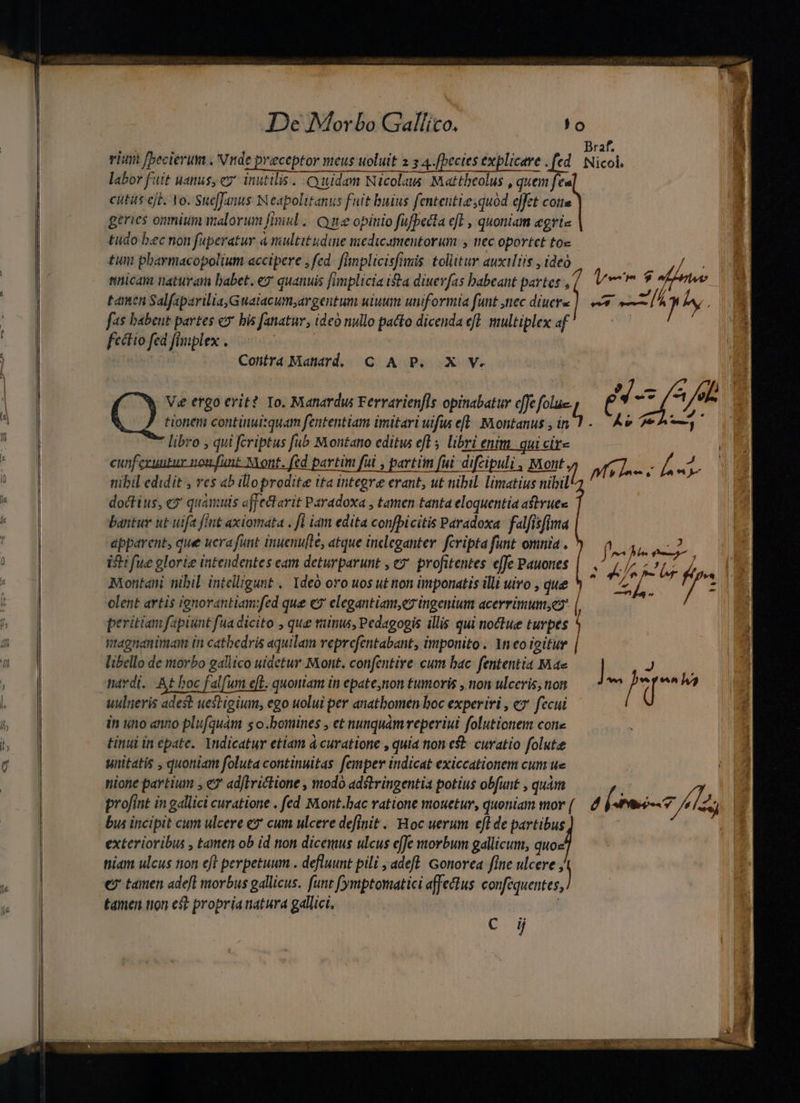 De Morbo Gallico. 10
Braf.
rium ſpecierum. Vnde præceptor meus uoluit 234. ſpecies explicare. ſed Nicol.
labor fuit uanus, et inutilis. Quidam Nicolaus Mattheolus, quem ſe⸗
cutus eſt. Io. Sueſſanus Neapolitanus fuit huius ſententiæ, quòd eſſet con⸗
geries omnium malorum ſimul. Quæ opinio ſuſpecta eſt, quoniam ægri⸗
tudo hæc non ſuperatur à multitudine medicamentorum, nec oportet to⸗
tum pharmacopolium accipere, ſed ſimplicisſimis tollitur auxiliis, ideò
unicam naturam habet. et quanuis ſimplicia iſta diuerſas habeant partes,
tamen Salſaparilia, Guaiacum, argentum uiuum uniformia ſunt, nec diuer⸗
ſas habent partes et his ſanatur, ideò nullo pacto dicenda eſt multiplex af
fectio ſed ſimplex.
Contra Manard. CAP. XV.
Quæ ergo erit? Io. Manardus Ferrarienſis opinabatur eſſe ſolu⸗
tionem continui: quam ſententiam imitari uiſus eſt Montanus, in
libro, qui ſcriptus ſub Montano editus eſt; libri enim qui cir⸗
cunferuntur non ſunt Mont. ſed partim ſui, partim ſui diſcipuli, Mont.
nihil edidit, res ab illo prodite ita integre erant, ut nihil limatius nihil
doctius, et quamuis affectarit Paradoxa, tamen tanta eloquentia aſtrue⸗
bantur ut uiſa ſint axiomata. ſi iam edita conſpicitis Paradoxa falſisſima
apparent, quæ uera ſunt inuenuſte, atque ineleganter ſcripta ſunt omnia.
iſti ſuæ gloriæ intendentes eam deturparunt, et profitentes eſſe Pauones
Montani nihil intelligunt. Ideò oro uos ut non imponatis illi uiro, quæ
olent artis ignorantiam: ſed quæ et elegantiam, et ingenium acerrimum, et
peritiam ſapiunt ſua dicito, quæ minus, Pedagogis illis qui noctuæ turpes
magnanimam in cathedris aquilam repreſentabant, imponito. In eo igitur
libello de morbo gallico uidetur Mont. conſentire cum hac ſententia Ma⸗
nardi. At hoc falſum eſt. quoniam in epate, non tumoris, non ulceris, non
uulneris adest uestigium, ego uolui per anathomen hoc experiri, et ſecui
in uno anno pluſquàm 50. homines, et nunquàm reperiui ſolutionem con⸗
tinui in epate. Indicatur etiam à curatione, quia non est curatio ſolutæ
unitatis, quoniam ſoluta continuitas ſemper indicat exiccationem cum u⸗
nione partium, et adſtrictione, modò adstringentia potius obſunt, quàm
proſint in gallici curatione. ſed Mont. hac ratione mouetur, quoniam mor
bus incipit cum ulcere et cum ulcere deſinit. Hoc uerum eſt de partibus
exterioribus, tamen ob id non dicemus ulcus eſſe morbum gallicum, quo⸗
niam ulcus non eſt perpetuum. defluunt pili, adeſt Gonorea ſine ulcere,
et tamen adeſt morbus gallicus. ſunt ſymptomatici affectus conſequentes,
tamen non est propria natura gallici.
C ij